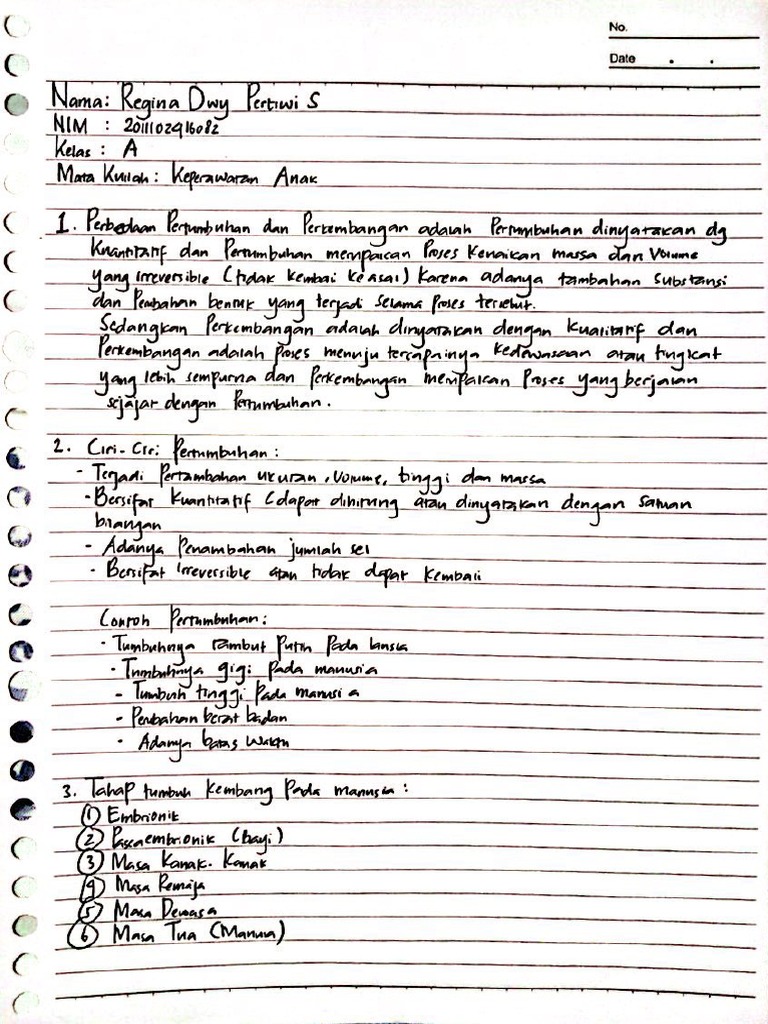 No.
Date
Nama: Regina Dwy Pertiwi S
NIM : 2011102416082
Kelas : A
Mata Kuliah : Keperawatan Anak
1. Perbedaan Pertumbuhan dan Perkembangan adalah Pertumbuhan dinyatakan dg
Kuantitatif dan Pertumbuhan merupakan Proses Kenaikan massa dan Volume
yang irreversible (tidak kembali ke asal) Karena adanya tambahan Substansi
dan Perubahan bentuk yang terjadi selama Proses tersebut.
Sedangkan Perkembangan adalah dinyatakan dengan Kualitatif dan
Perkembangan adalah Proses menuju tercapainya Kedewasaan atau tingkat
yang lebih sempurna dan Perkembangan merupakan Proses yang berjalan
sejajar dengan Pertumbuhan.
2. Ciri-Ciri Pertumbuhan :
- Terjadi Pertambahan ukuran, Volume, tinggi dan massa
- Bersifat Kuantitatif (dapat dihitung atau dinyatakan dengan Satuan
bilangan
- Adanya Penambahan jumlah sel
- Bersifat irreversible atau tidak dapat Kembali
Contoh Pertumbuhan :
- Tumbuhnya rambut Putih Pada lansia
- Tumbuhnya gigi Pada manusia
- Tumbuh tinggi Pada manusia
- Perubahan berat badan
- Adanya batas Waktu
3. Tahap tumbuh Kembang Pada manusia :
① Embrionik
② Pascaembrionik (bayi)
③ Masa Kanak-Kanak
④ Masa Remaja
⑤ Masa Dewasa
⑥ Masa Tua (Manula)